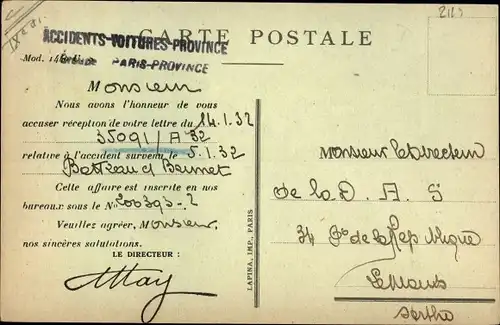 CARTE POSTALE
ACCIDENTS-VOITURES-PROVINCE
PARIS-PROVINCE
Mod.
Monsieur
Nous avons l'honneur de vous
accuser réception de votre lettre du 14.1.32
35091/A 32
relative à l'accident survenu le 5.1.32
Cette affaire est inscrite en nos
bureaux sous le No 200393-2
Veuillez agréer, Monsieur,
nos sincères salutations.
LE DIRECTEUR :
May
LAPINA, IMP., PARIS
Monsieur le Directeur
de la D. A. S
34 de la République
Le Mans
Sarthe